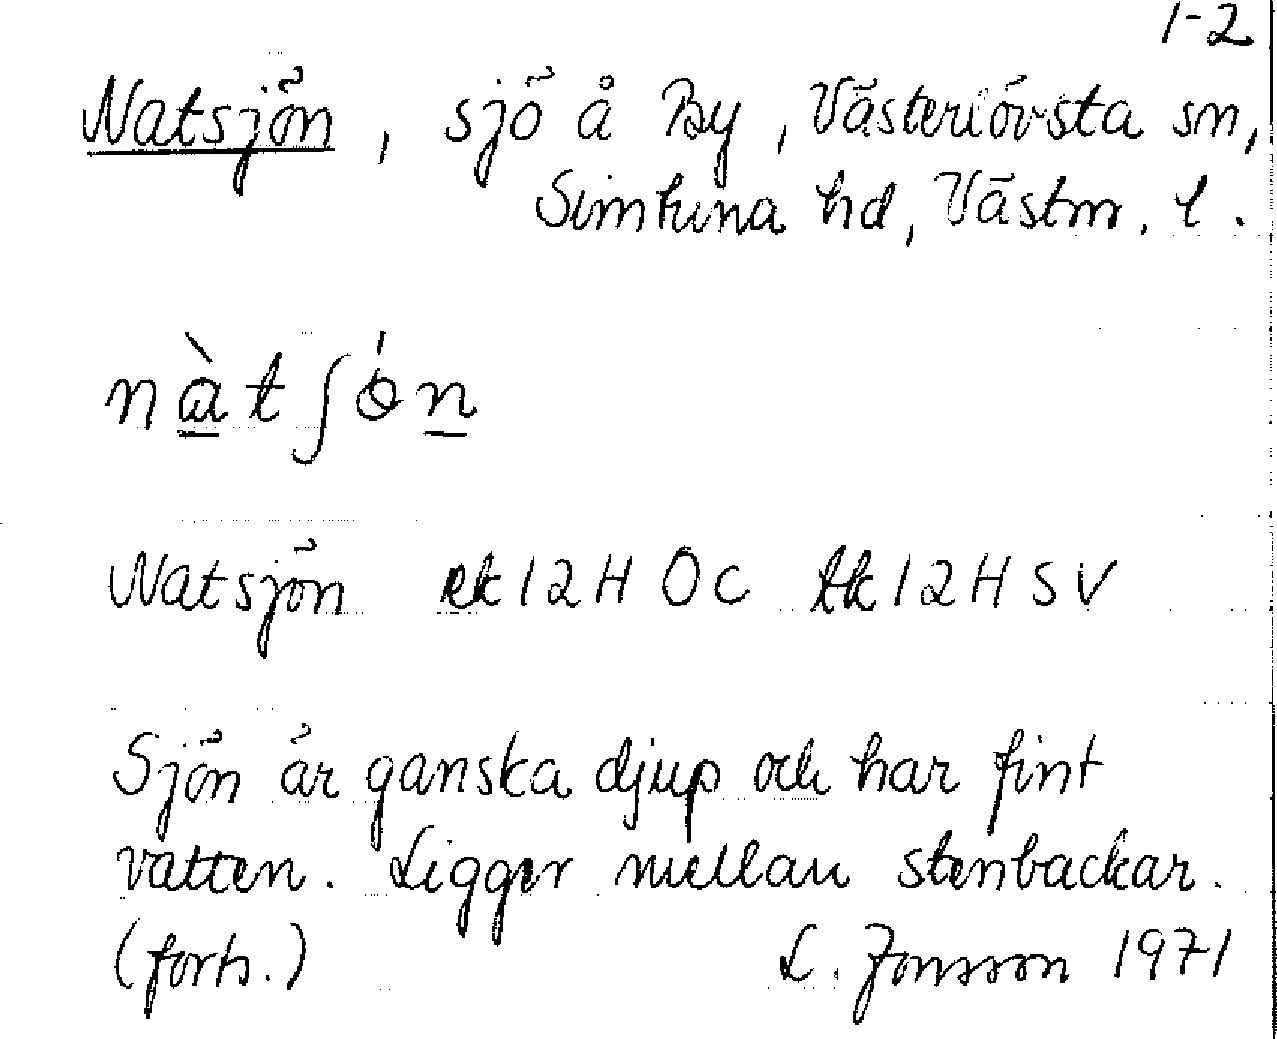 1-2
Natsjön, sjö å By, Västerlövsta sn,
Simtuna hd, Västm. l.
nàtʃǿn
Natsjön ek 12H Öc tk 12H SV
Sjön är ganska djup och har fint
vatten. Ligger mellan stenbackar.
(forts.) L. Jonsson 1971